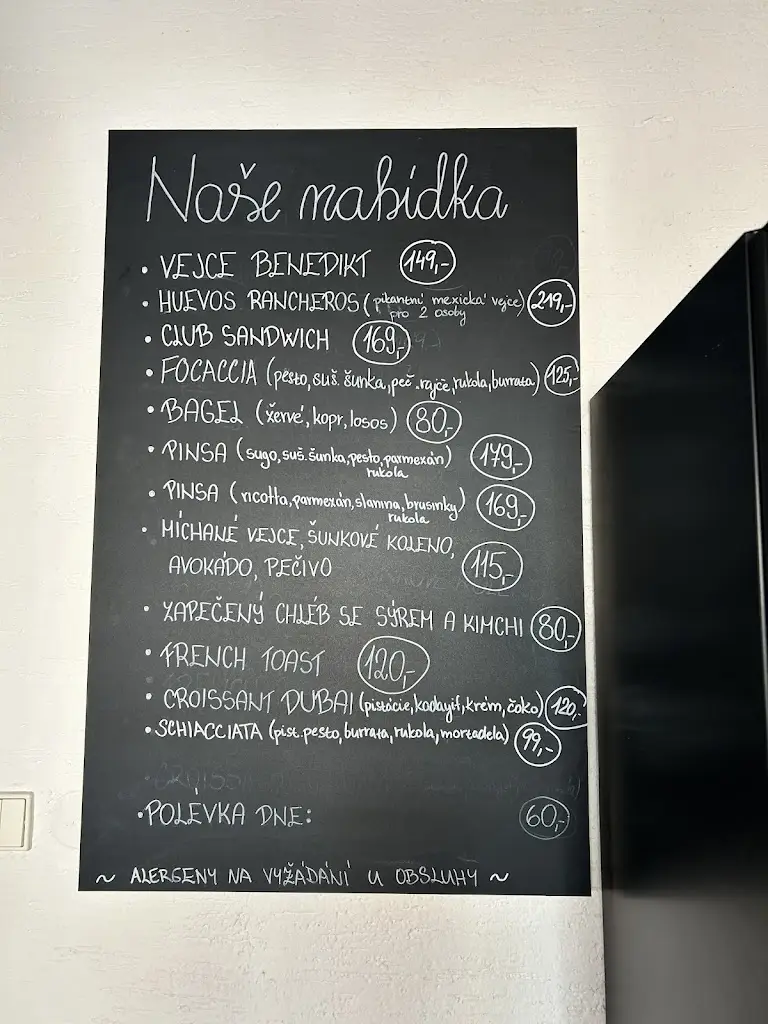 Naše nabídka
• VEJCE BENEDIKT 149,-
• HUEVOS RANCHEROS (pikantní mexická vejce) 219,-
pro 2 osoby
• CLUB SANDWICH 169,-
• FOCACCIA (pesto, suš. šunka, peč. rajče, rukola, burrata) 125,-
• BAGEL (žervé, kopr, losos) 80,-
• PINSA (sugo, suš. šunka, pesto, parmexán) 179,-
rukola
• PINSA (ricotta, parmexán, slanina, brusinky) 169,-
rukola
• MÍCHANÉ VEJCE, ŠUNKOVÉ KOLENO,
AVOKÁDO, PEČIVO 115,-
• ZAPEČENÝ CHLÉB SE SÝREM A KIMCHI 80,-
• FRENCH TOAST 120,-
• CROISSANT DUBAI (pistácie, kadayif, krém, čoko) 120,-
• SCHIACCIATA (pist. pesto, burrata, rukola, mortadela) 99,-
• POLÉVKA DNE: 60,-
~ ALERGENY NA VYŽÁDÁNÍ U OBSLUHY ~